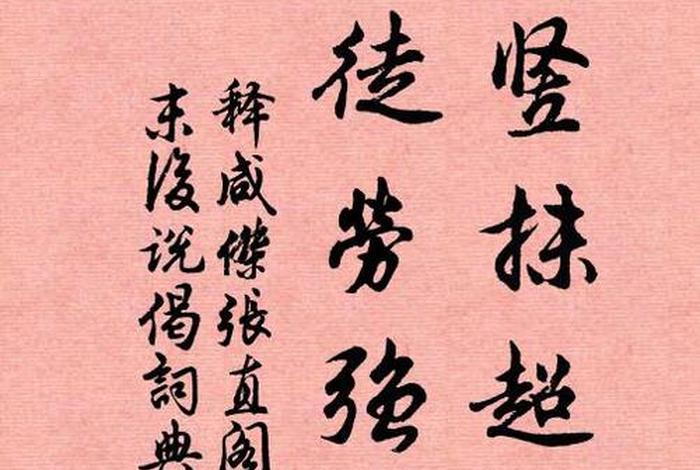 竖抹超
徒劳强
释咸傑張直阁
末後说偈詞典